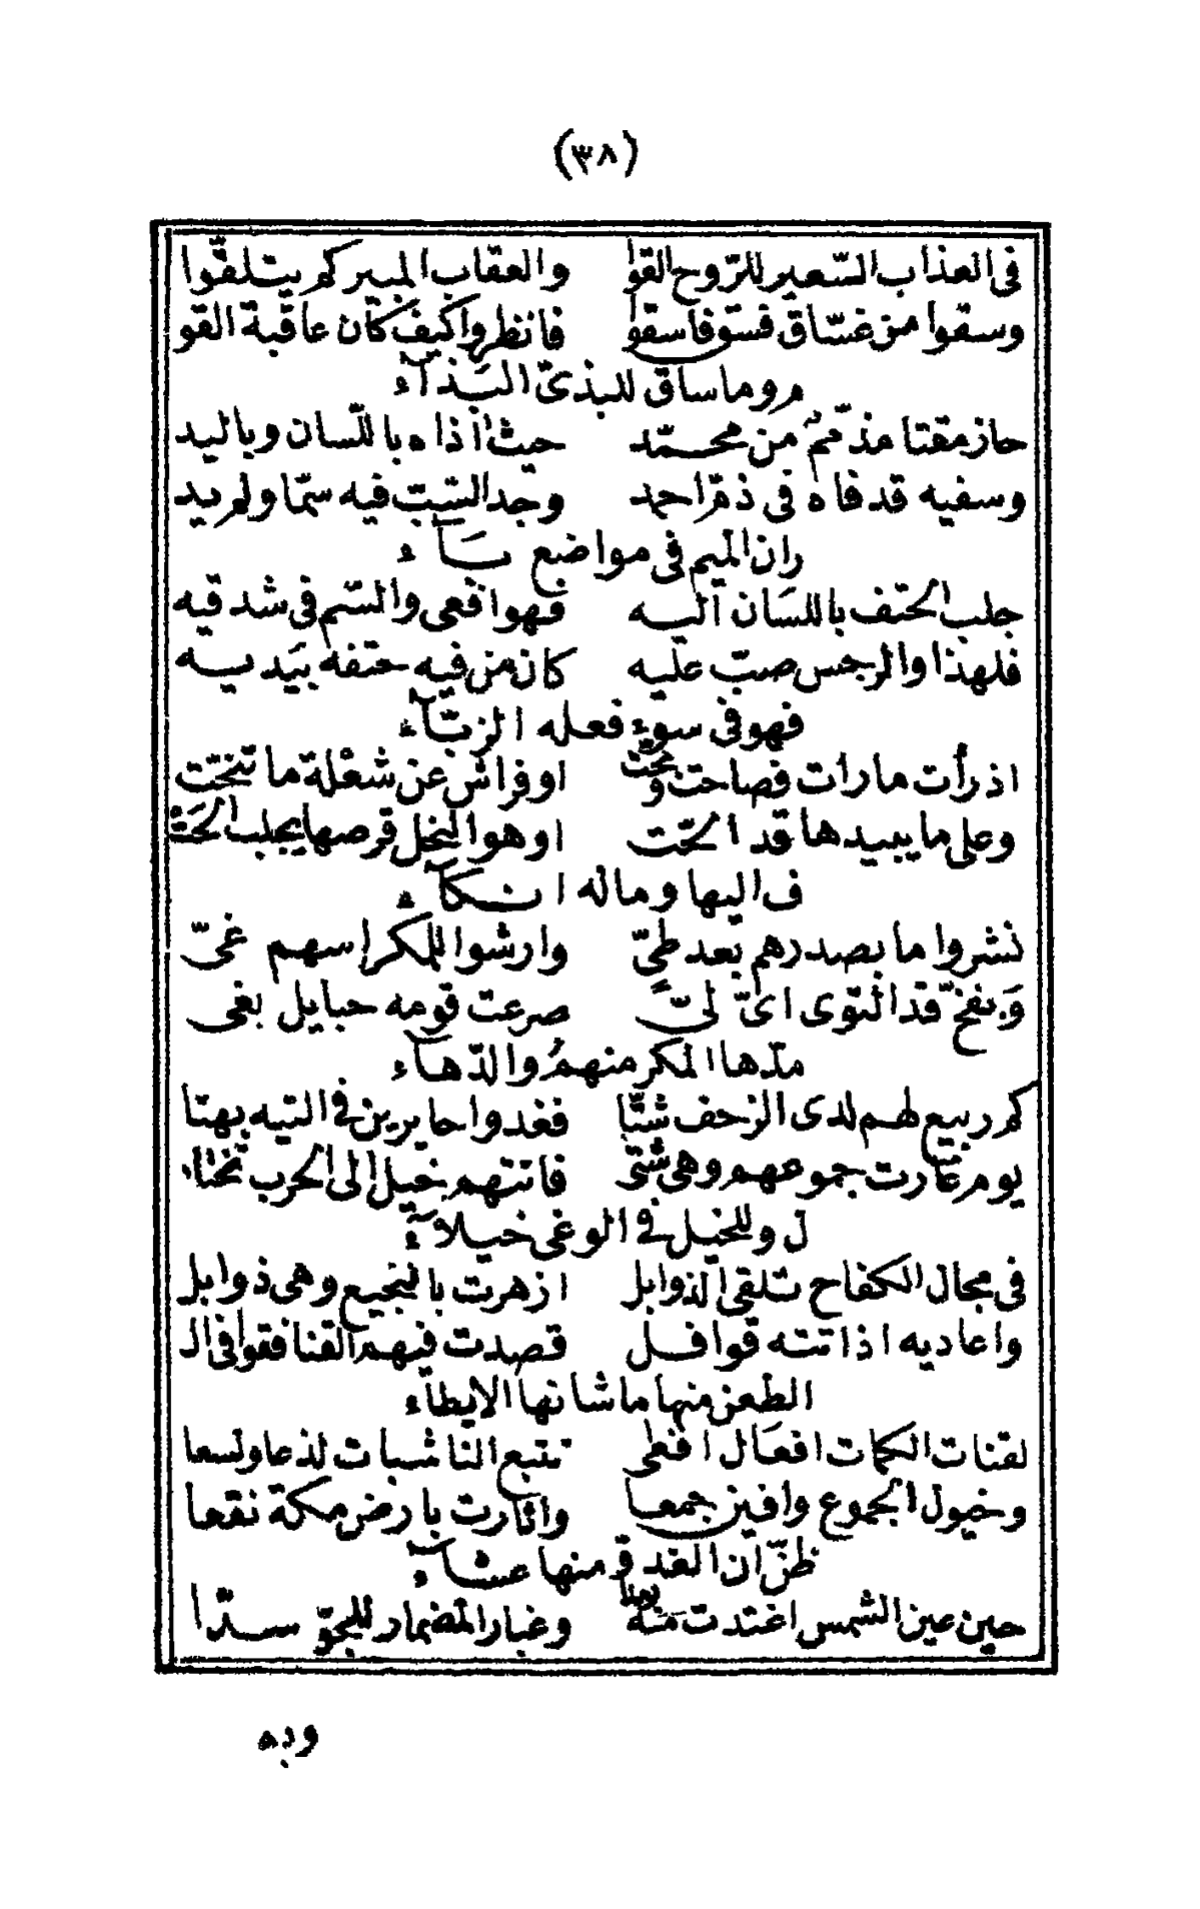 (٣٨)
فى العذاب السّعير للرّوح القوا والعقاب المبير كم يتلقّوا
وسقوا من غسّاق فسق فاسقوا فانظروا كيف كان عاقبة القو
م وما ساق للبذىّ البَذآء
حاز مقتا مذمّم من محمّد حيث اذاه باللّسان وباليد
وسفيه قد فاه فى ذمّ احمد وجد السّبّ فيه سمّا ولم يد
ر ان الميم فى مواضع بَآء
جلب الحتف باللسَان اليه فهو افعى والسّم فى شدقيه
فلهذا والرجس صبّ عليه كان من فيه حتفه بيَديه
فهو فى سوء فعله الزبّآء
اذ رأت ما رات فصاحت و او فراش عن شعلة ما تنحّت
وعلى ما يبيدها قد الحّت او هو النحل قرصها يجلب الحَتْ
ف اليها وماله انكآء
نشروا ما بصدرهم بعد طىّ وارشوا للمكر اسهم غىّ
قد التوى اىّ لىّ صرعت قومه حبايل بغى
مدّها المكر منهم والدّهآء
كم ربيع لهم لدى الزحف شتّا فغدوا حايرين فى التيه بهتا
يوم غارت جموعهم وهى شتّى فاتتهم خيل الى الحرب تختا
ل وللخيل فى الوغى خيلآء
فى مجال الكفاح تلقى الذوابل ازهرت بالنجيع وهى ذوابل
واعاديه اذ اتته قوافل قصدت فيهم القنا فقوافى الـ
الطعن منها ما شانها الايطآء
لقنات الكمات افعَال افعى تتبع الناشبات لذعا ولسعا
وخيول الجموع وافين جمعا واثارت بارض مكة نقعا
ظنّ ان الغدو منها عشآء
حين عين الشمس اغتدت منه وغبار المضمار للجوّ سدّا
وبه